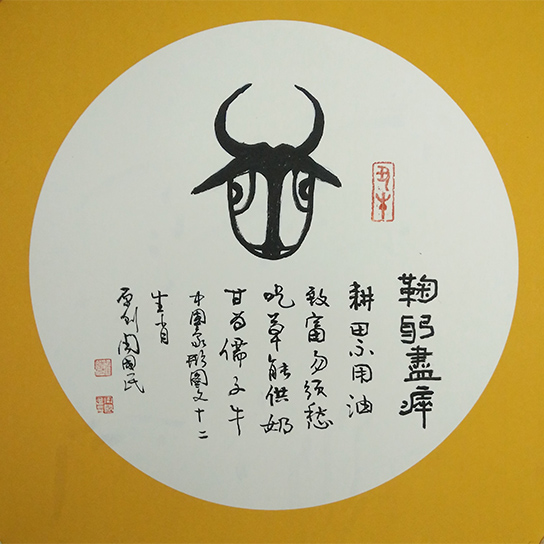 丑牛
鞠躬盡瘁
耕田不用油
致富勿须愁
吃草能供奶
甘为儒子牛
中国象形图文十二
生肖
原创 周国民